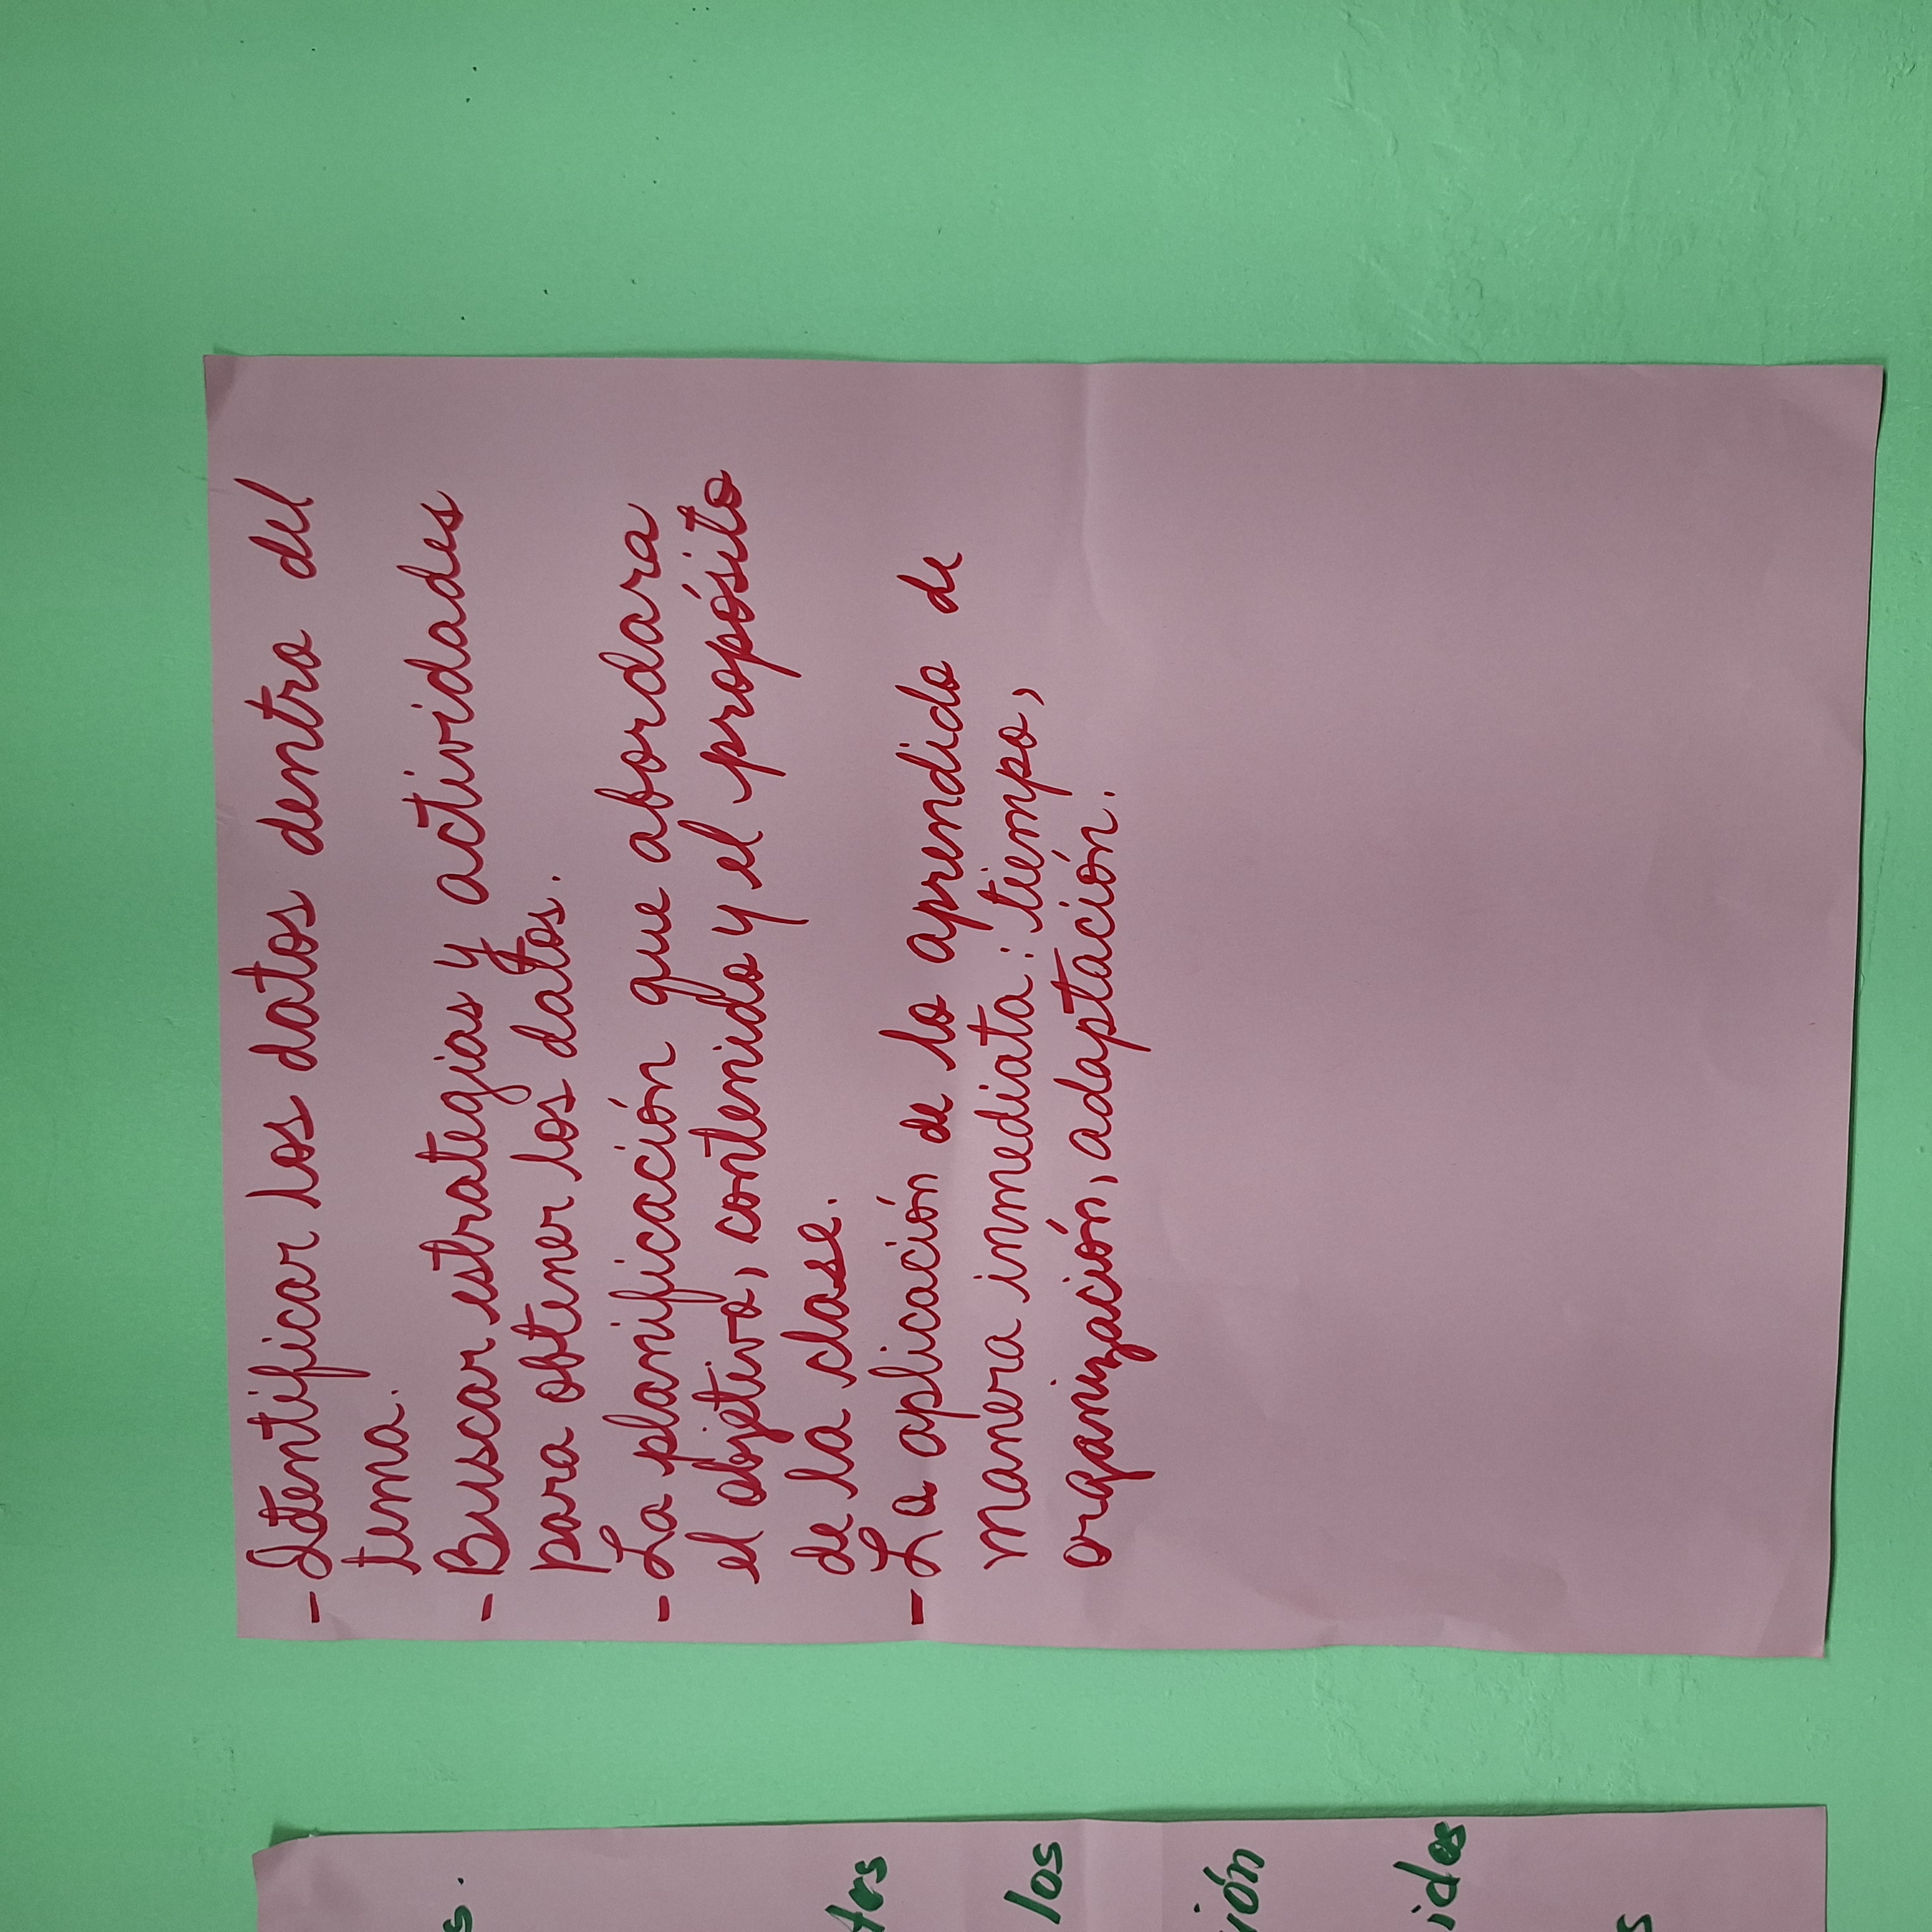 - Identificar los datos dentro del
tema.
- Buscar estrategias y actividades
para obtener los datos.
- La planificación que abordara
el objetivo, contenido y el propósito
de la clase.
- La aplicación de lo aprendido de
manera inmediata: tiempo,
organización, adaptación.
s.
tos
los
ión
idos
s